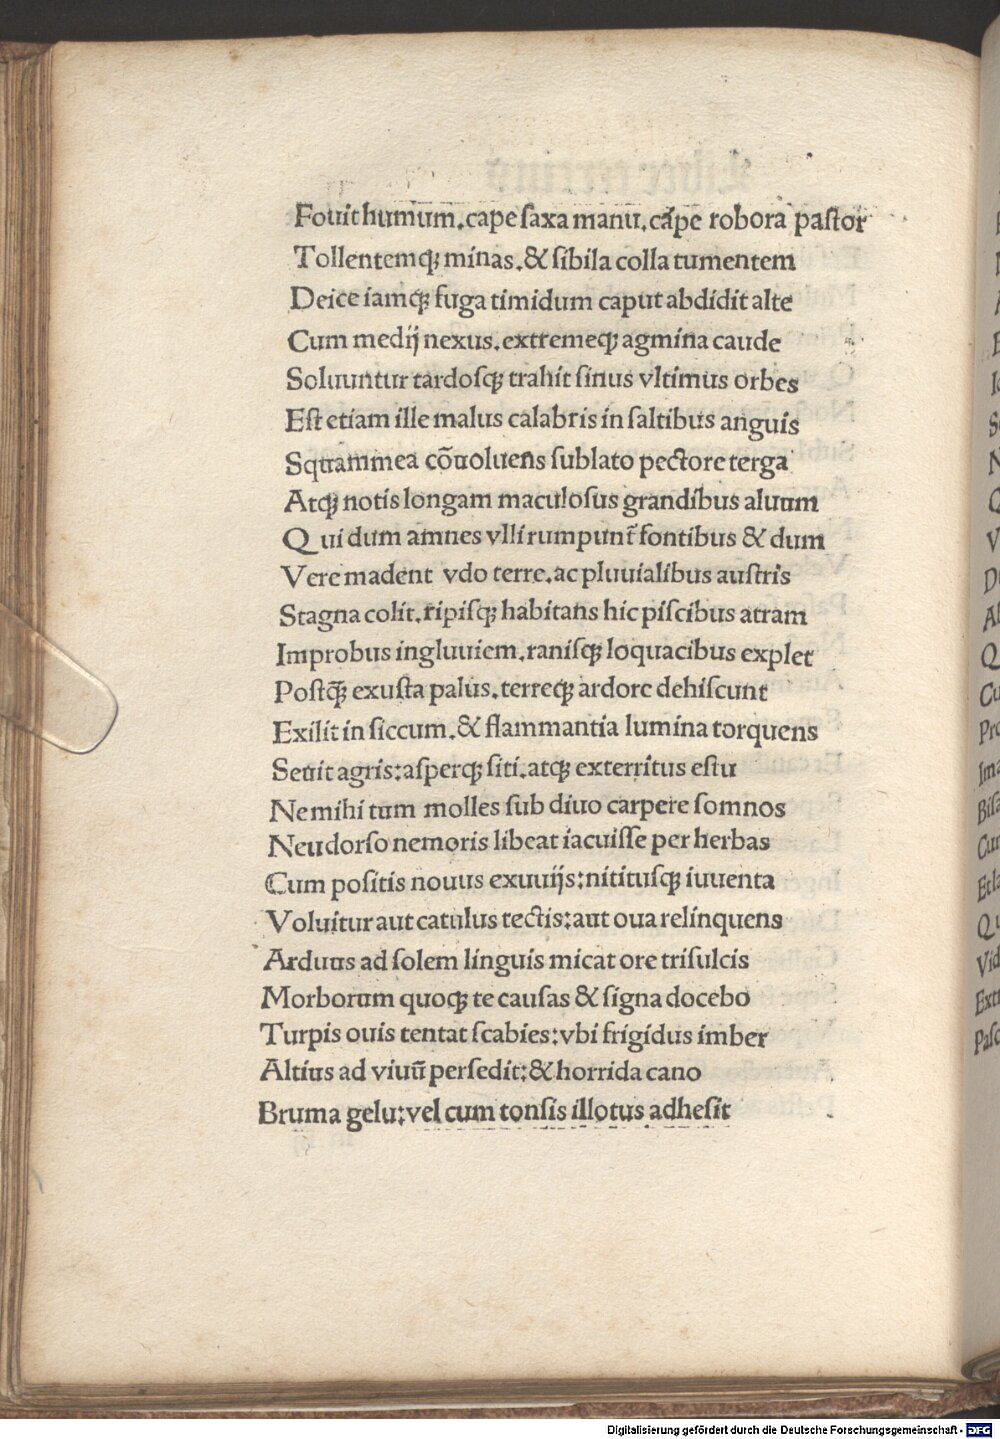 Fouit humum.cape saxa manu.cape robora pastor
Tollentemqꝫ minas.& sibila colla tumentem
Deice iamqꝫ fuga timidum caput abdidit alte
Cum medij nexus.extremeqꝫ agmina caude
Soluuntur tardosqꝫ trahit sinus vltimus orbes
Est etiam ille malus calabris in saltibus anguis
Squammea cōuoluens sublato pectore terga
Atqꝫ notis longam maculosus grandibus aluum
Qui dum amnes vlli rumpunt̄ fontibus & dum
Vere madent vdo terre.ac pluuialibus austris
Stagna colit.ripisqꝫ habitans hic piscibus atram
Improbus ingluuiem.ranisqꝫ loquacibus explet
Postqꝫ̄ exusta palus.terreqꝫ ardore dehiscunt
Exilit in siccum.& flammantia lumina torquens
Seuit agris:asperqꝫ siti.atqꝫ exterritus estu
Ne mihi tum molles sub diuo carpere somnos
Neu dorso nemoris libeat iacuisse per herbas
Cum positis nouus exuuijs:nititusqꝫ iuuenta
Voluitur aut catulus tectis:aut oua relinquens
Arduus ad solem linguis micat ore trisulcis
Morborum quoqꝫ te causas & signa docebo
Turpis ouis tentat scabies:vbi frigidus imber
Altius ad viuū persedit:& horrida cano
Bruma gelu:vel cum tonsis illotus adhesit
Digitalisierung gefördert durch die Deutsche Forschungsgemeinschaft - DFG